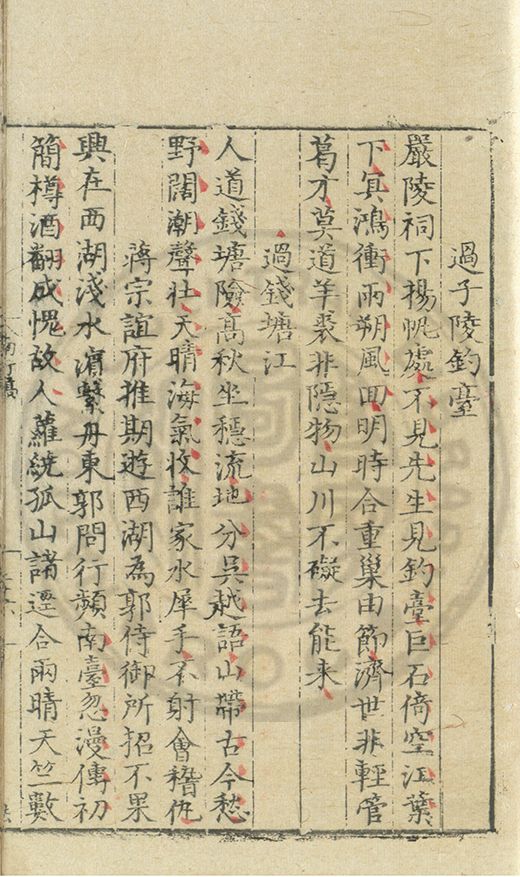 過子陵釣臺
嚴陵祠下揚帆處不見先生見釣臺巨石倚空江葉
下㝠鴻衝雨朔風回明時合重巢由節濟世非輕管
葛才莫道羊裘非隱物山川不礙去能来
過錢塘江
人道錢塘險高秋坐穩流地分吳越語山帶古今愁
野闊潮聲壯天晴海氣收誰家水犀手不射會稽仇
蔣宗誼府推期遊西湖為郭侍御所招不果
興在西湖淺水濱繫舟東郭問行頻南臺忽漫傳初
簡樽酒翻成愧故人蘿繞孤山諸逕合雨晴天竺數